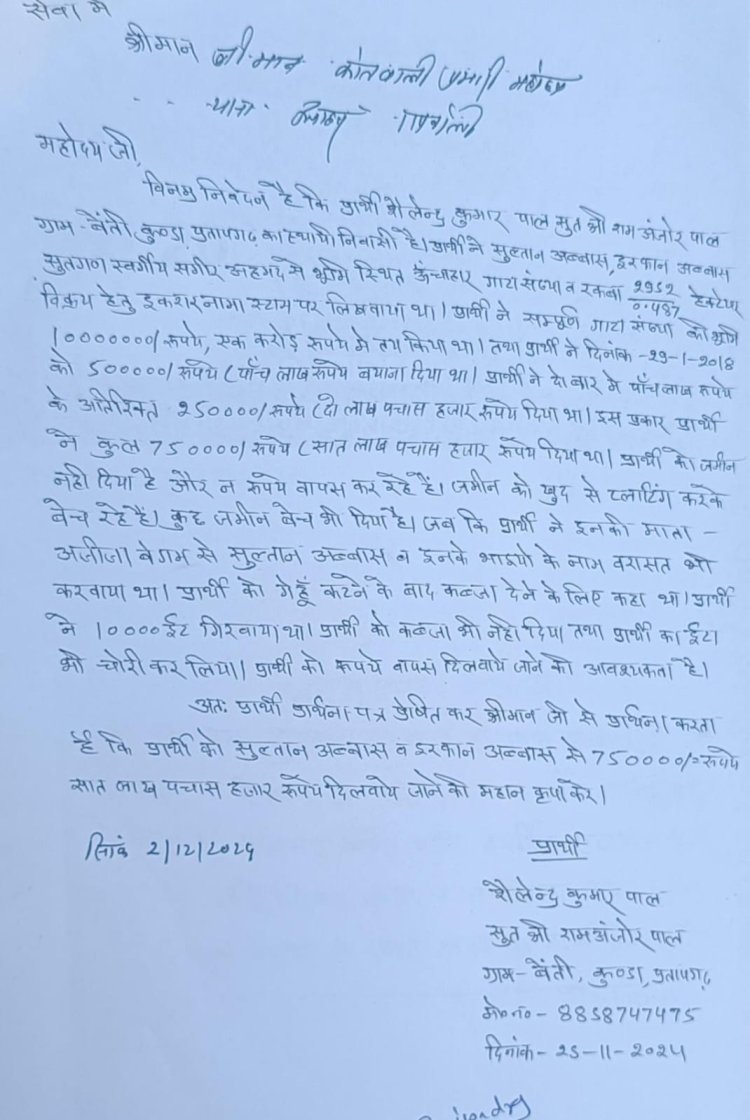 सेवा में
श्रीमान श्रीमान कोतवाली प्रभारी महोदय
थाना
महोदय जी,
विनम्र निवेदन है कि प्रार्थी शैलेन्द्र कुमार पाल सुत श्री राम अंजोर पाल
ग्राम- बेंती, कुण्डा प्रतापगढ़ का स्थायी निवासी है। प्रार्थी ने सुल्तान अब्बास, इरकान अब्बास
सुतगण स्वर्गीय सगीर अहमद से भूमि स्थित ऊंचाहार गाटा संख्या व रकबा २९४२/०.४८७ हेक्टेयर
विक्रय हेतु इकरारनामा स्टाम्प पर लिखवाया था। प्रार्थी ने सम्पूर्ण गाटा संख्या की भूमि
10000000/ रूपये, एक करोड़ रूपये में तय किया था। तथा प्रार्थी ने दिनांक -29-1-2018
को 500000/ रूपये (पाँच लाख रूपये बयाना दिया था। प्रार्थी ने दो बार में पाँच लाख रूपये
के अतिरिक्त 250000/ रूपये (दो लाख पचास हजार रूपये दिया था। इस प्रकार प्रार्थी
ने कुल 750000/ रूपये (सात लाख पचास हजार रूपये दिया था। प्रार्थी को जमीन
नही दिया है और न रूपये वापस कर रहे है। जमीन को खुद से प्लाटिंग करके
बेच रहे है। कुछ जमीन बेच भी दिया है। जब कि प्रार्थी ने इनकी माता -
अजीजा बेगम से सुल्तान अब्बास व इनके भाइयो के नाम वरासत भी
करवाया था। प्रार्थी को गेहूँ कटने के बाद कब्जा देने के लिए कहा था। प्रार्थी
ने 10000 ईट गिरवाया था। प्रार्थी को कब्जा भी नही दिया तथा प्रार्थी का ईटा
भी चोरी कर लिया। प्रार्थी को रूपये वापस दिलवाये जाने की आवश्यकता है।
अतः प्रार्थी प्रार्थना पत्र प्रेषित कर श्रीमान जी से प्रार्थना करता
है कि प्रार्थी को सुल्तान अब्बास व इरकान अब्बास से 750000/= रूपये
सात लाख पचास हजार रूपये दिलवाये जाने की महान कृपा करे।
दिनांक 2/12/2024
प्रार्थी
शैलेन्द्र कुमार पाल
सुत श्री रामअंजोर पाल
ग्राम- बेंती, कुण्डा, प्रतापगढ़
मो०नं० - 8858747475
दिनांक- 25-11-2024